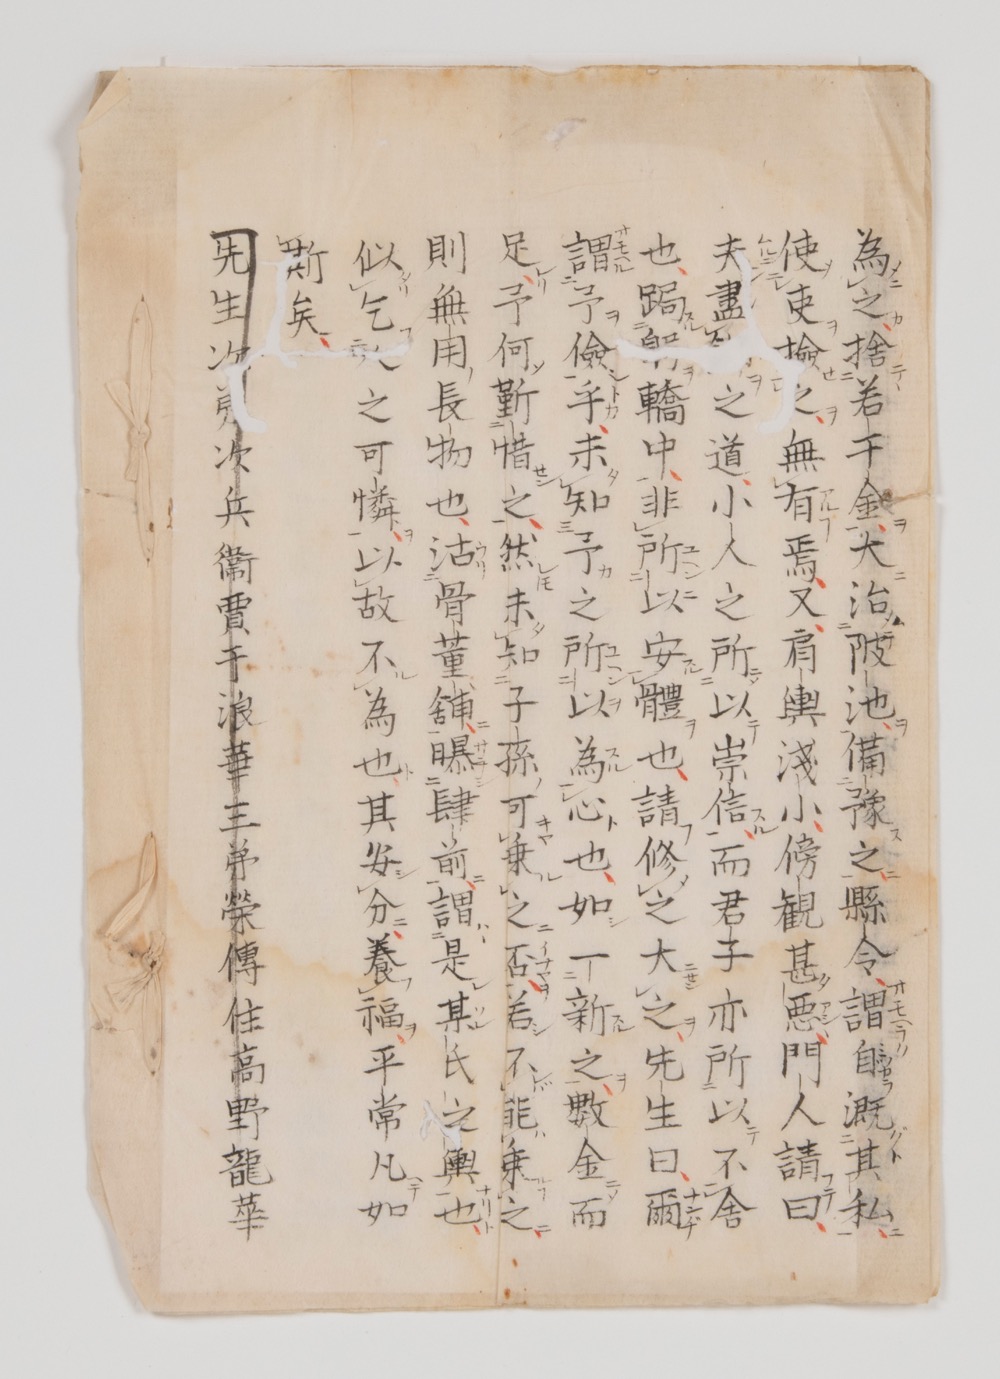 為之捨若干金大治陂池備豫之縣令謂自漑其私
使吏撿之無有焉又肩輿淺小傍観甚悪門人請曰
夫盡之道小人之所以崇信而君子亦所以不舍
也跼躬轎中非所以安體也請修之大之先生曰爾
謂予儉乎未知予之所以為心也如一新之數金而
足予何靳惜之然未知子孫可乗之否若不能乗之
則無用長物也沽骨董舗曝肆前謂是某氏之輿也
似乞人之可憐以故不為也其安分養福平常凡如
斯矣
先生次男次兵衞賈于浪華三弟榮傳住高野龍華